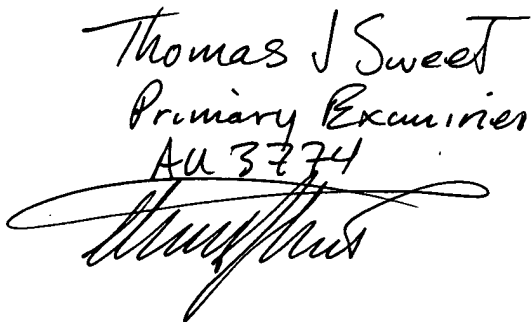 Thomas J Sweet
Primary Examiner
AU 3774